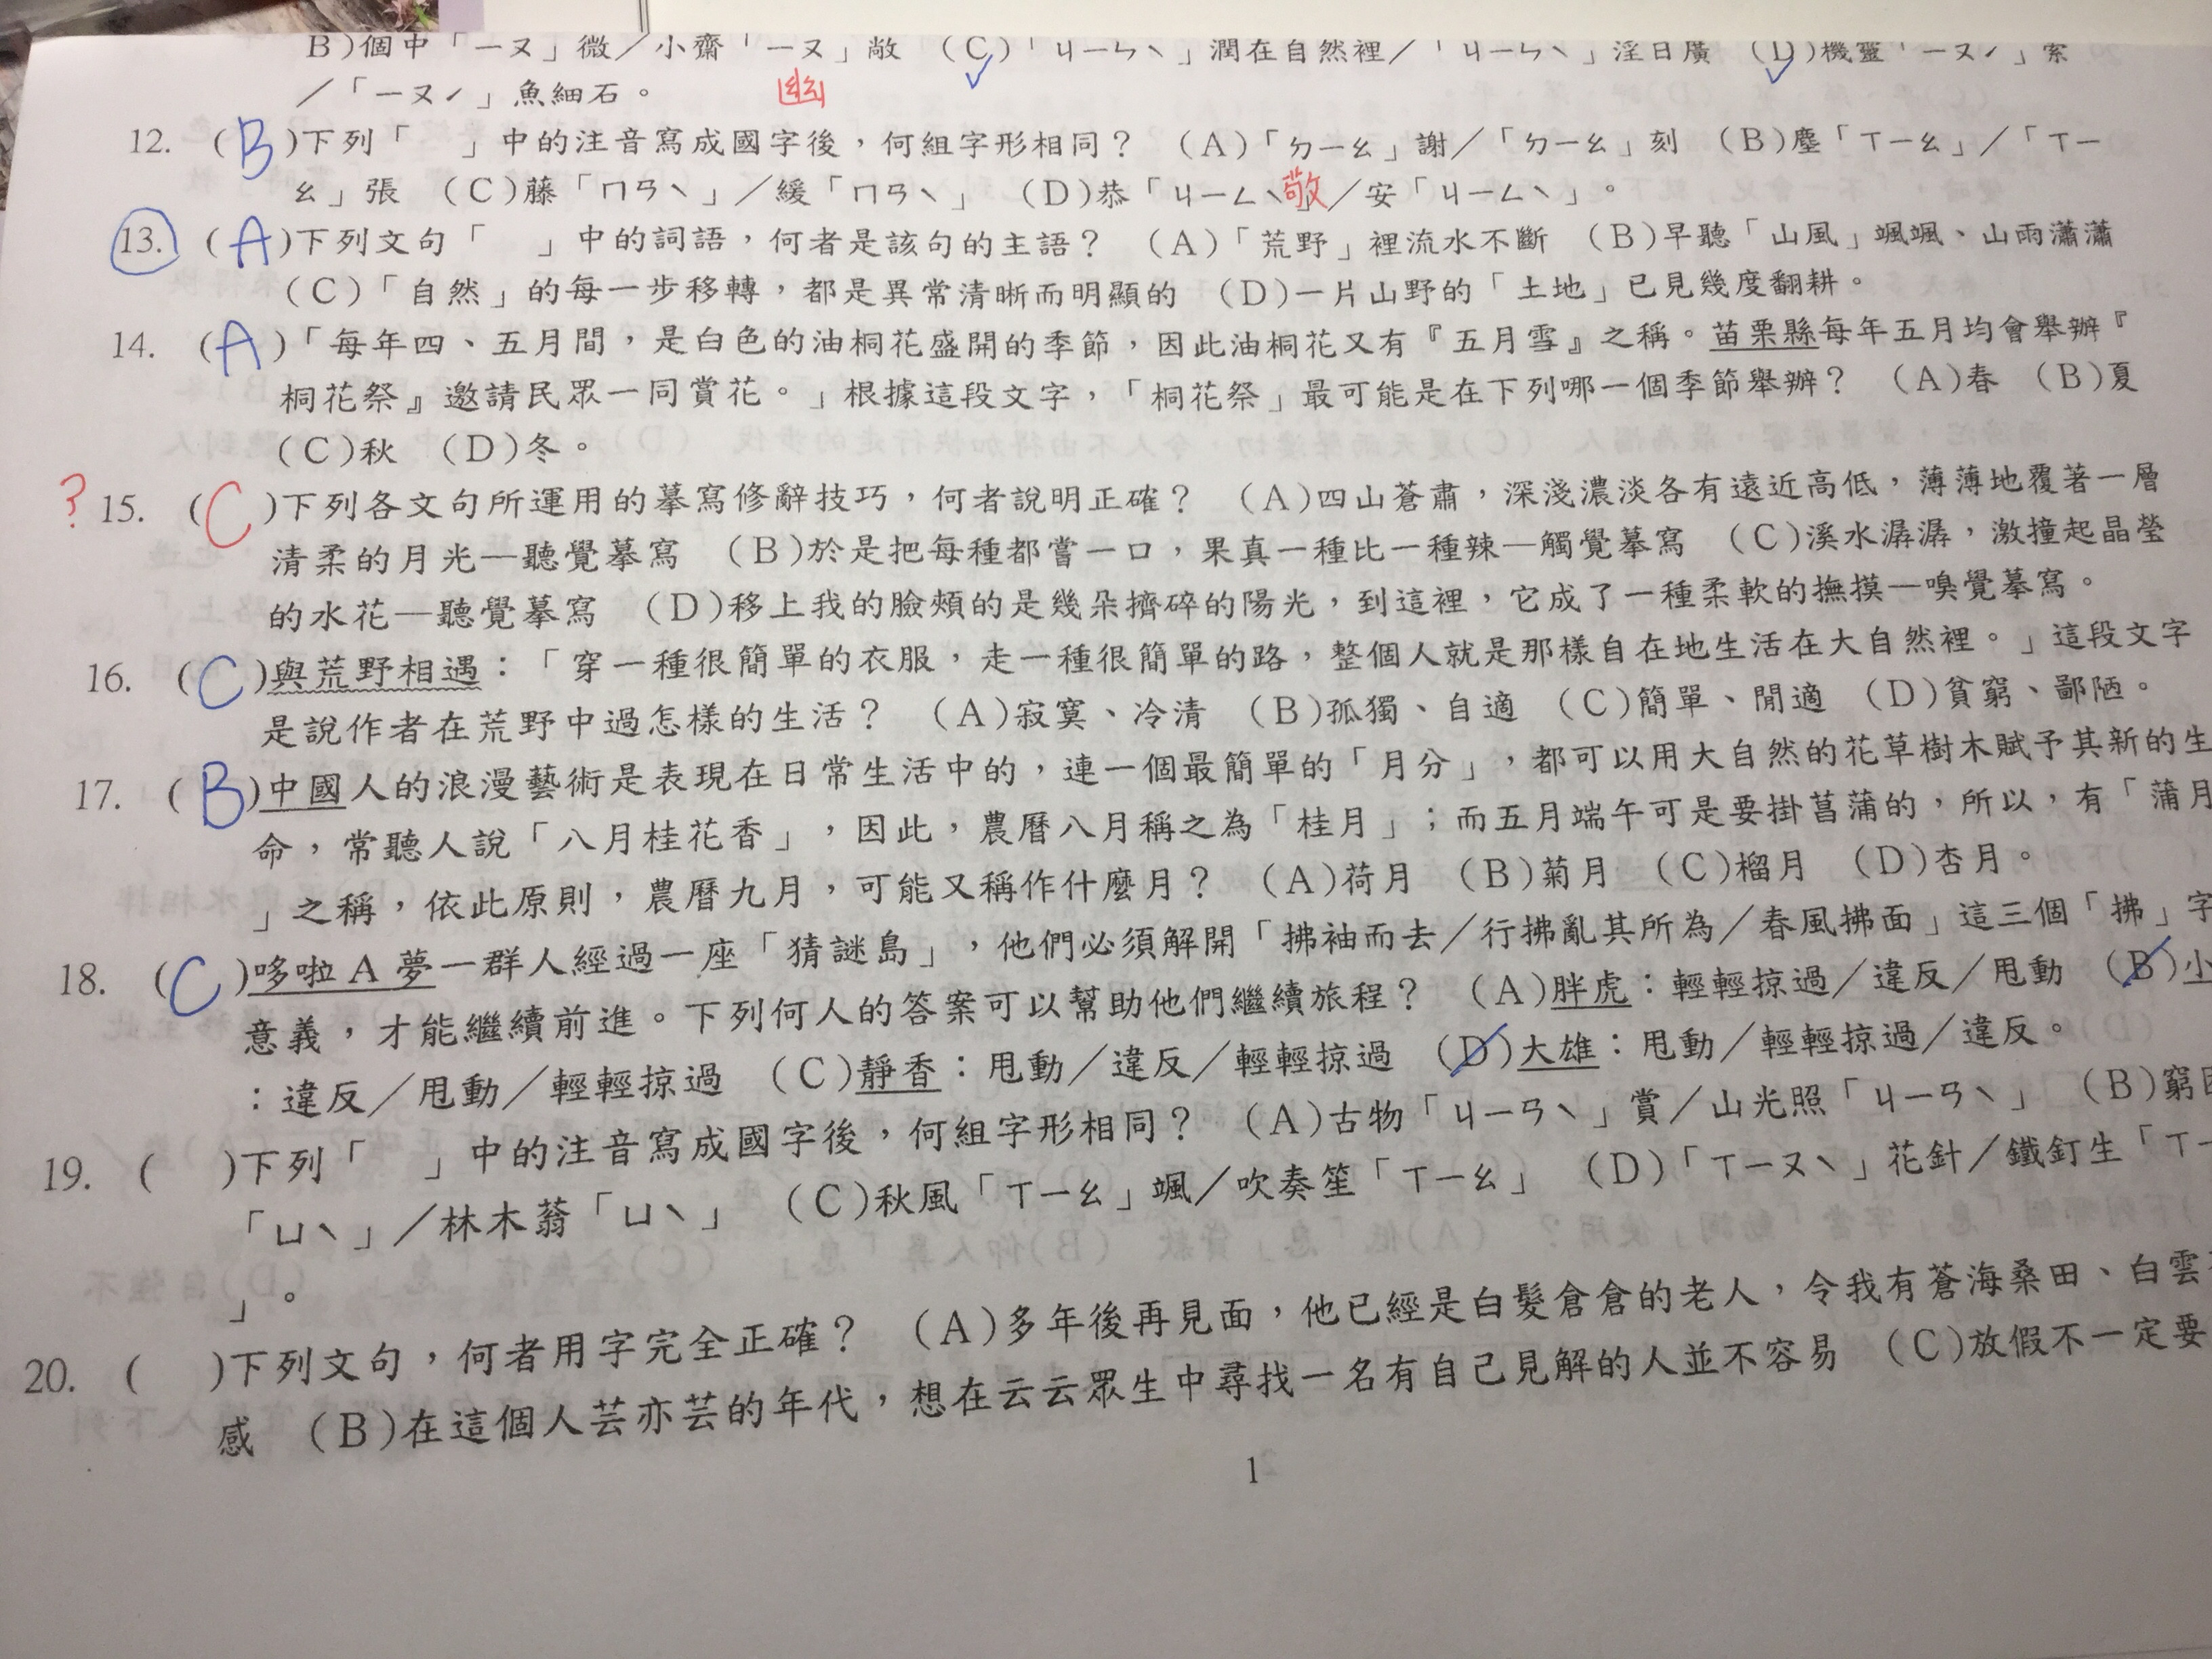 B)個中「ㄧㄡ」微／小齋「ㄧㄡ」敞 (C)「ㄐㄧㄣˋ」潤在自然裡／「ㄐㄧㄣˋ」淫日廣 (D)機靈「ㄧㄡˊ」索
／「ㄧㄡˊ」魚細石。 幽
12. (B)下列「 」中的注音寫成國字後，何組字形相同？ (A)「ㄉㄧㄠ」謝／「ㄉㄧㄠ」刻 (B)塵「ㄒㄧㄠ」／「ㄒㄧ
ㄠ」張 (C)藤「ㄇㄢˋ」／緩「ㄇㄢˋ」 (D)恭「ㄐㄧㄥˋ」敬／安「ㄐㄧㄥˋ」。
13. (A)下列文句「 」中的詞語，何者是該句的主語？ (A)「荒野」裡流水不斷 (B)早聽「山風」颯颯、山雨瀟瀟
(C)「自然」的每一步移轉，都是異常清晰而明顯的 (D)一片山野的「土地」已見幾度翻耕。
14. (A)「每年四、五月間，是白色的油桐花盛開的季節，因此油桐花又有『五月雪』之稱。苗栗縣每年五月均會舉辦『
桐花祭』邀請民眾一同賞花。」根據這段文字，「桐花祭」最可能是在下列哪一個季節舉辦？ (A)春 (B)夏
(C)秋 (D)冬。
? 15. (C)下列各文句所運用的摹寫修辭技巧，何者說明正確？ (A)四山蒼肅，深淺濃淡各有遠近高低，薄薄地覆著一層
清柔的月光—聽覺摹寫 (B)於是把每種都嘗一口，果真一種比一種辣—觸覺摹寫 (C)溪水潺潺，激撞起晶瑩
的水花—聽覺摹寫 (D)移上我的臉頰的是幾朵擠碎的陽光，到這裡，它成了一種柔軟的撫摸—嗅覺摹寫。
16. (C)與荒野相遇：「穿一種很簡單的衣服，走一種很簡單的路，整個人就是那樣自在地生活在大自然裡。」這段文字
是說作者在荒野中過怎樣的生活？ (A)寂寞、冷清 (B)孤獨、自適 (C)簡單、閒適 (D)貧窮、鄙陋。
17. (B)中國人的浪漫藝術是表現在日常生活中的，連一個最簡單的「月分」，都可以用大自然的花草樹木賦予其新的生
命，常聽人說「八月桂花香」，因此，農曆八月稱之為「桂月」；而五月端午可是要掛菖蒲的，所以，有「蒲月
」之稱，依此原則，農曆九月，可能又稱作什麼月？ (A)荷月 (B)菊月 (C)榴月 (D)杏月。
18. (C)哆啦A夢一群人經過一座「猜謎島」，他們必須解開「拂袖而去／行拂亂其所為／春風拂面」這三個「拂」字
意義，才能繼續前進。下列何人的答案可以幫助他們繼續旅程？ (A)胖虎：輕輕掠過／違反／甩動 (B)小
：違反／甩動／輕輕掠過 (C)靜香：甩動／違反／輕輕掠過 (D)大雄：甩動／輕輕掠過／違反。
19. ( )下列「 」中的注音寫成國字後，何組字形相同？ (A)古物「ㄐㄧㄢˋ」賞／山光照「ㄐㄧㄢˋ」 (B)窮
「ㄩˋ」／林木蓊「ㄩˋ」 (C)秋風「ㄒㄧㄠ」颯／吹奏笙「ㄒㄧㄠ」 (D)「ㄒㄧㄡˋ」花針／鐵釘生「ㄒㄧ
」。
20. ( )下列文句，何者用字完全正確？ (A)多年後再見面，他已經是白髮倉倉的老人，令我有蒼海桑田、白雲
感 (B)在這個人芸亦芸的年代，想在云云眾生中尋找一名有自己見解的人並不容易 (C)放假不一定要
1